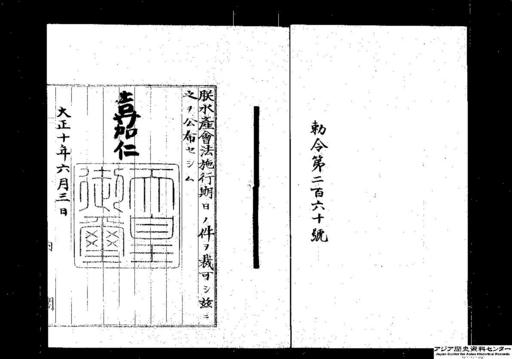 勅令第二百六十號
朕水産會法施行期日ノ件ヲ裁可シ茲ニ
之ヲ公布セシム
嘉仁
天皇
御璽
大正十年六月三日
内閣
アジア歴史資料センター
Japan Center for Asian Historical Records